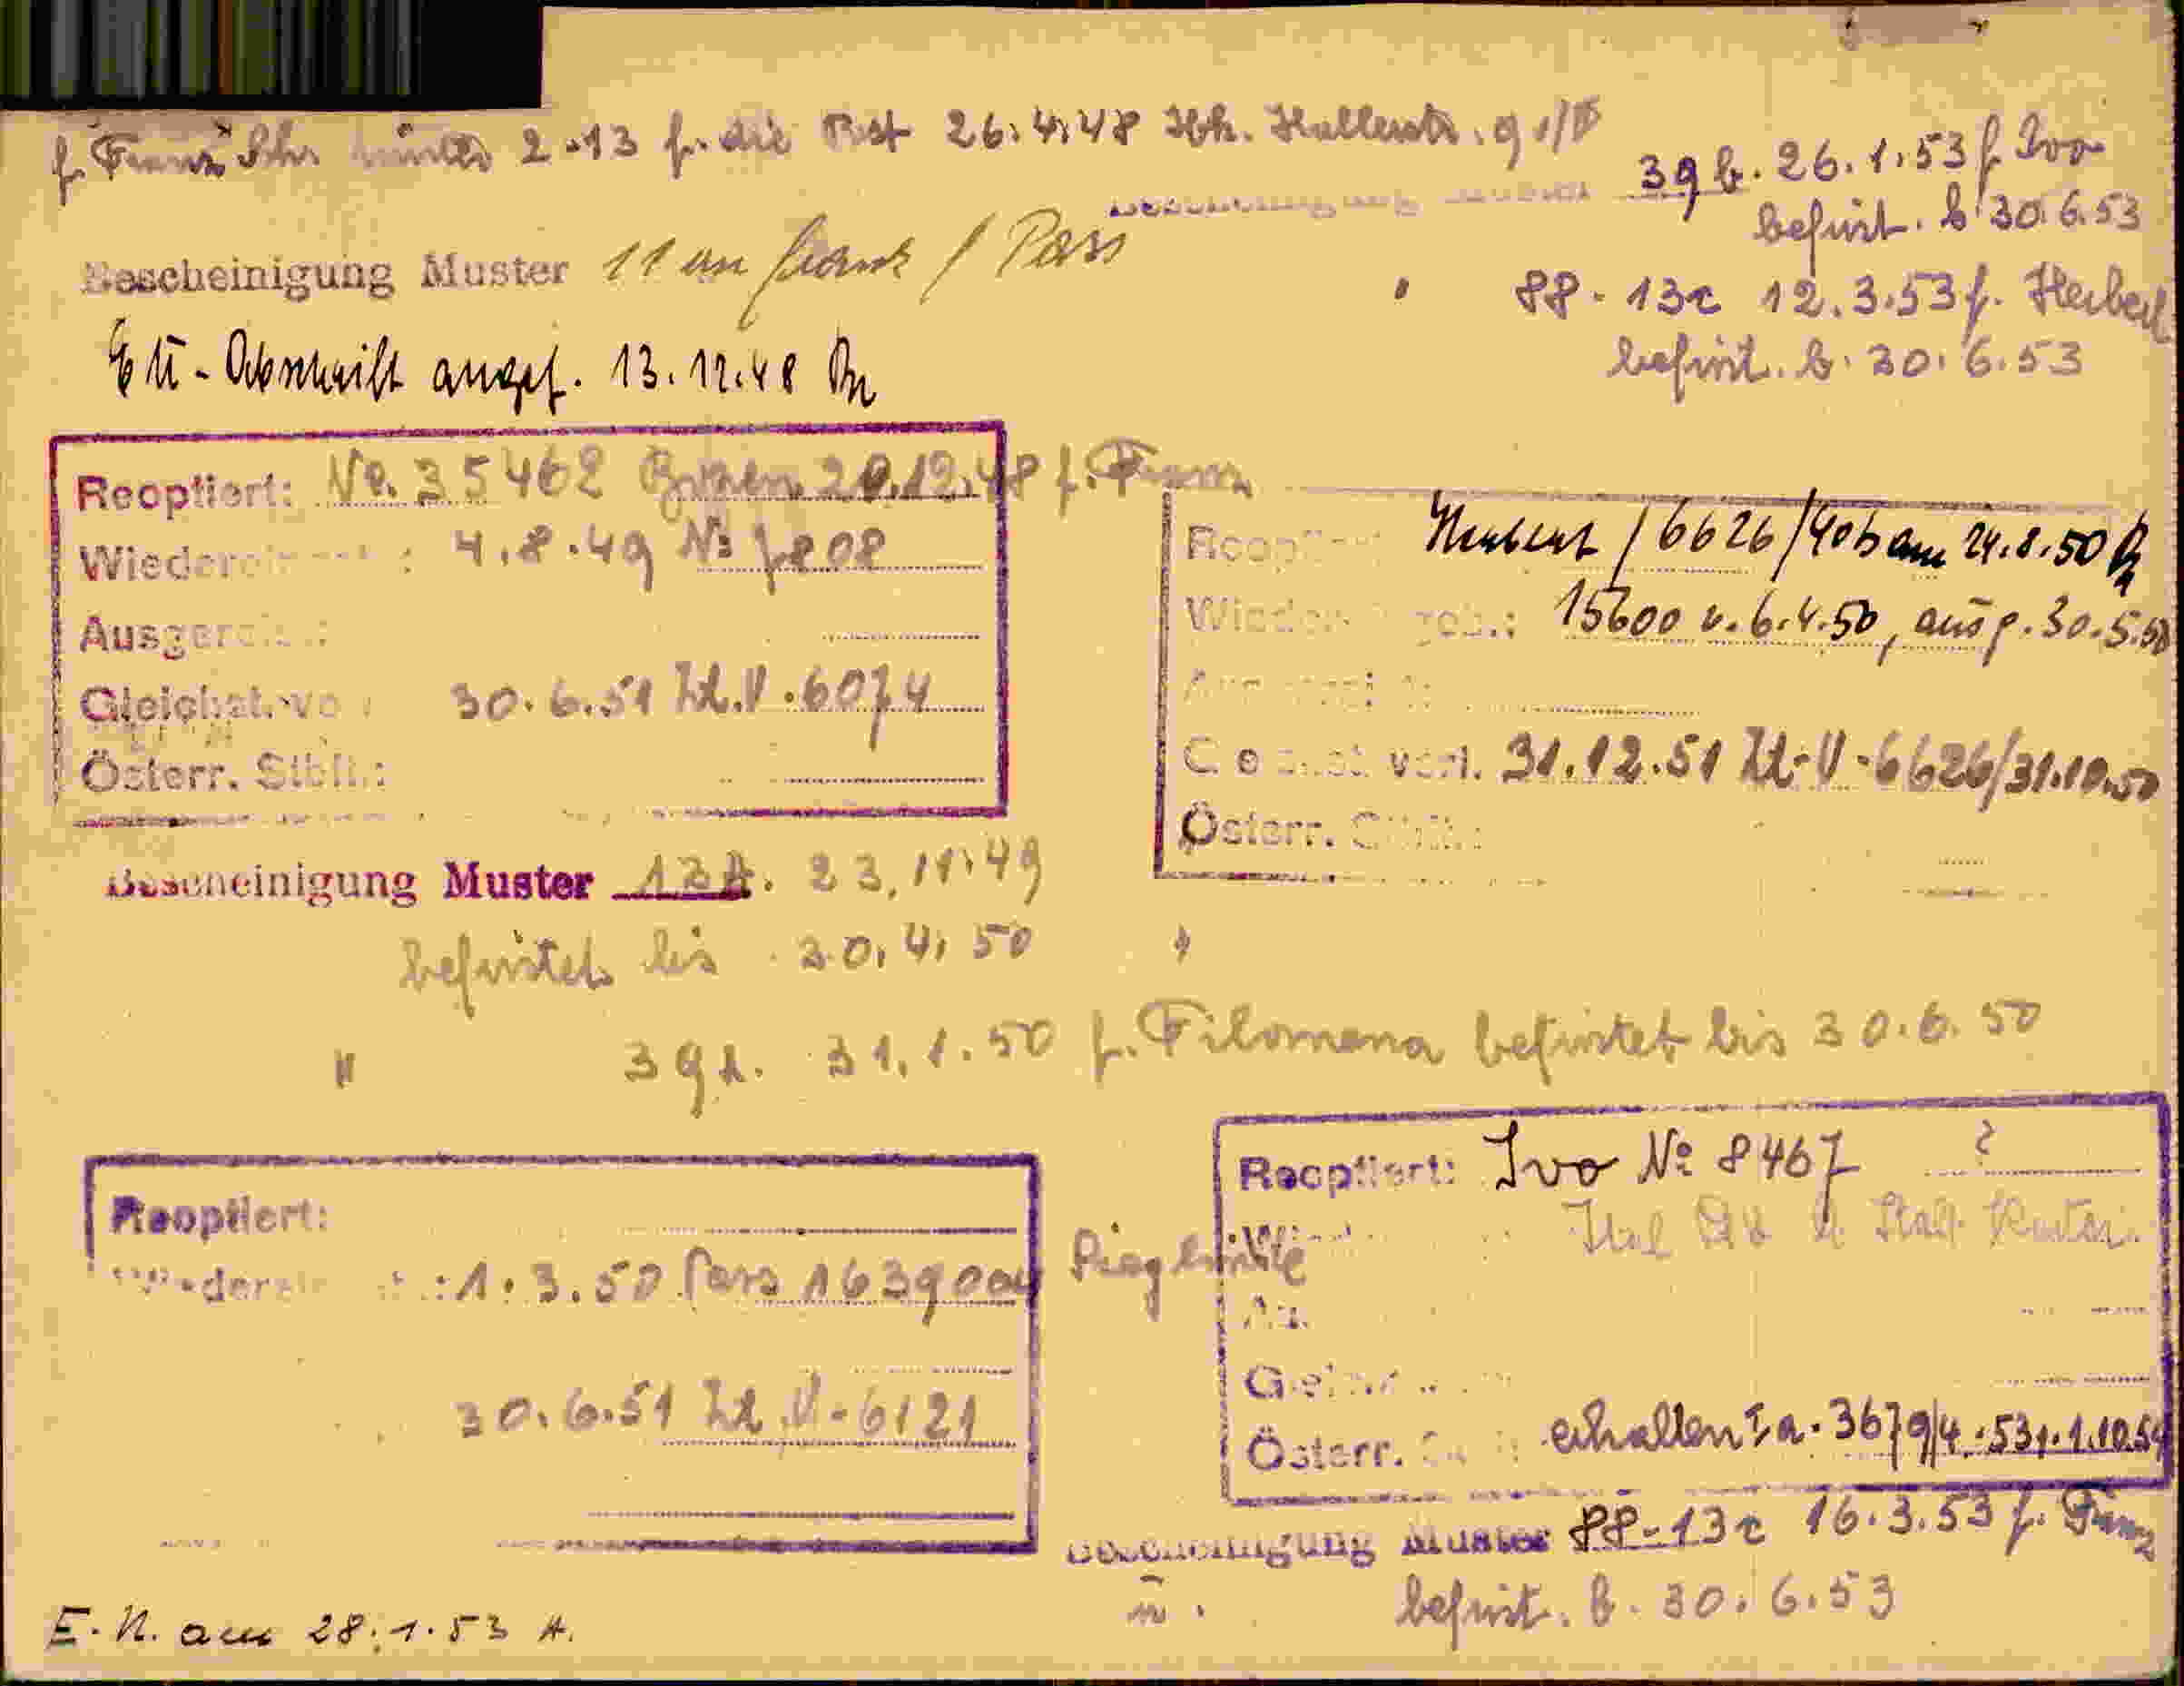 f. Franz 2.13 f. die 26.4.48 Ibk.
39 b. 26.1.53 f. Ivo
befrist. b. 30.6.53
Bescheinigung Muster 11 an Franz / Pass
88-13c 12.3.53 f. Herbert
befrist. b. 30.6.53
Abschrift 13.12.48
Reoptiert: No. 35462 Bozen 20.12.48 f. Franz
4.8.49 No 7808
30.6.51 Zl.V.6074
Österr. Stbft.:
Herbert / 6626 / 40b am 24.8.50
15600 v. 6.4.50, ausg. 30.5.50
verl. 31.12.51 Zl-V-6626/31.10.50
Österr.
Bescheinigung Muster 13A. 23.11.49
befristet bis 30.4.50
" 39 a. 31.1.50 f. Filomena befristet bis 30.6.50
Reoptiert:
1.3.50 Pass 1639004 Sieglinde
30.6.51 Zl.V-6121
Reoptiert: Ivo No 8467 ?
Österr. erhalten Ia-3679/4-53
Bescheinigung Muster 88-13c 16.3.53 f. Franz
befrist. b. 30.6.53
E.N. am 28.1.53 A.